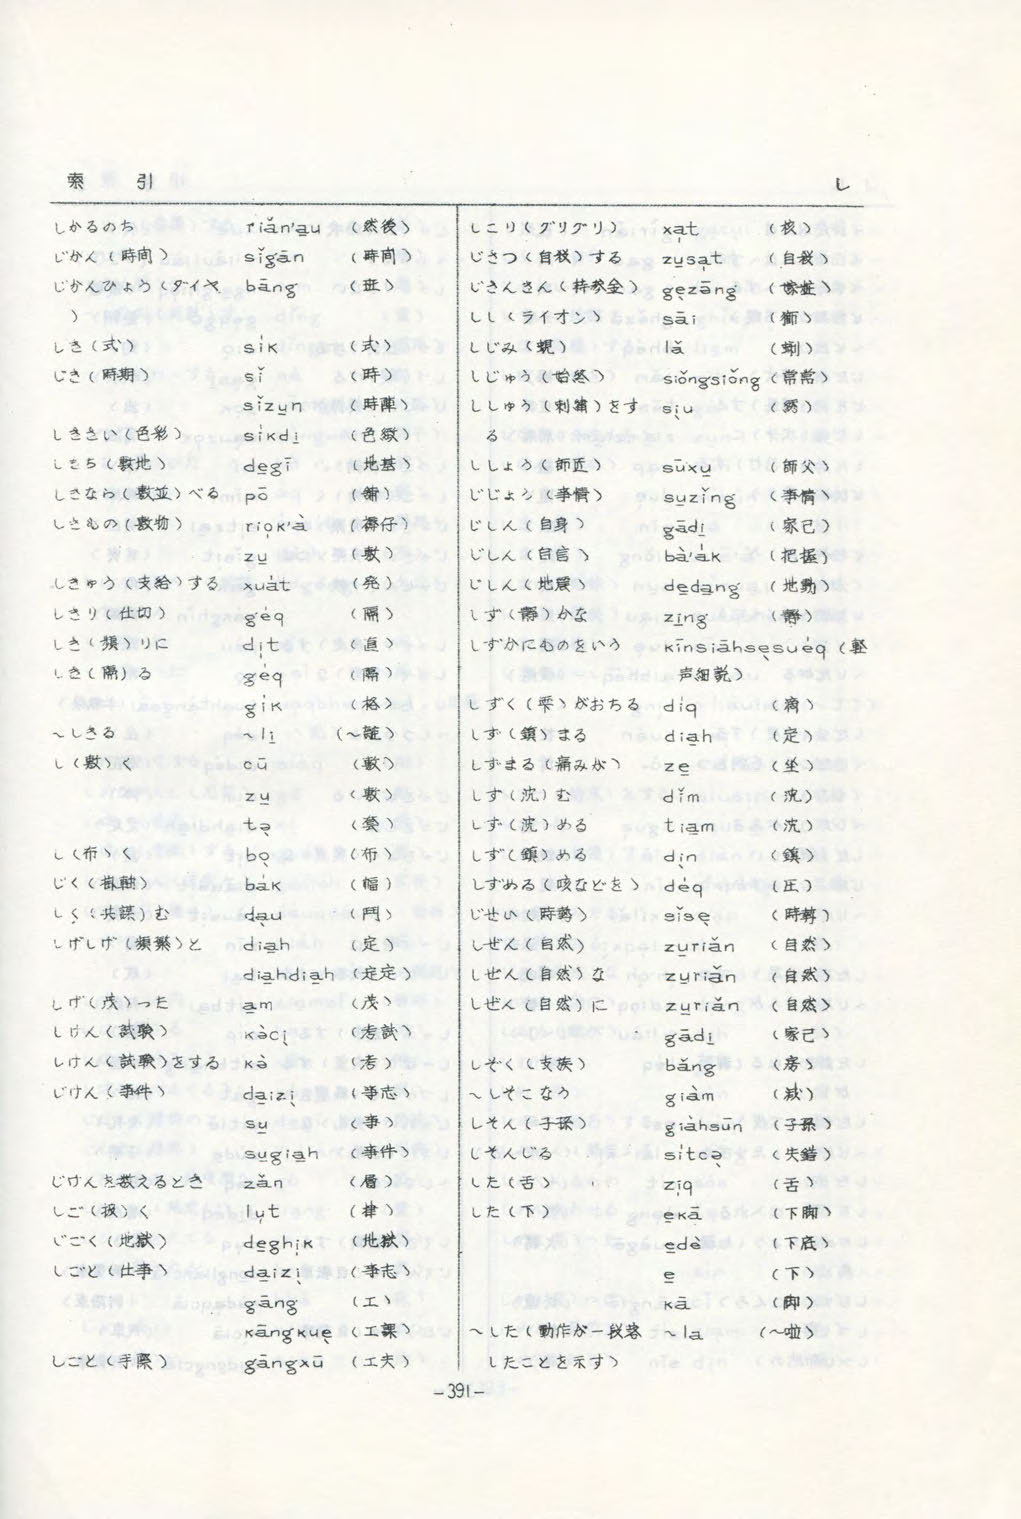 索　引　し
しかるのち　riǎn'a̱u　（然後）
じかん（時间）　sǐgān　（時间）
じかんひょう（ダイヤ　bāng　（班）
）
しき（式）　si̍k　（式）
じき（時期）　sǐ　（時）
sǐzu̱n　（時陣）
しきさい（色彩）　si̍kdi̱　（色緻）
しきち（敷地）　de̱gī　（地基）
しきなら（敷並）べる　pō　（舗）
しきもの（敷物）　riọk'à　（褥仔）
zu̱　（敷）
しきゅう（支給）する　xua̍t　（発）
しきり（仕切）　ge̍q　（隔）
しき（頻）りに　dịt　（直）
しき（隔）る　ge̍q　（隔）
gi̍k　（格）
〜しきる　〜li̱　（〜離）
し（敷）く　cū　（敷）
zu̱　（敷）
tə̣̀
し（布）く　bọ　（布）
じく（掛軸）　ba̍k　（幅）
しく（共謀）む　dạu　（鬥）
しげしげ（頻繁）と　dia̱h　（定）
dia̱hdia̱h　（定定）
しげ（茂）った　a̱m　（茂）
しけん（試験）　kə̀cị　（考試）
しけん（試験）をする　kə̀　（考）
じけん（事件）　da̱izị̀　（事志）
su̱　（事）
su̱gia̱h　（事件）
じけんを数えるとき　zǎn　（層）
しご（扱）く　lụt　（律）
じごく（地獄）　de̱ghịk　（地獄）
しごと（仕事）　da̱izị̀　（事志）
gāng　（工）
kāngkue̱　（工課）
しごと（手際）　gāngxū　（工夫）
しこり（グリグリ）　xạt　（核）
じさつ（自殺）する　zu̱sạt　（自殺）
じさんきん（持参金）　gẹ̀zōng
しし（ライオン）　sāi　（獅）
しじみ（蜆）　lǎ　（蜊）
しじゅう（始終）　siǒngsiǒng　（常常）
ししゅう（刺繍）をす　sịu　（綉）
る
ししょう（師匠）　sūxu̱　（師父）
じじょう（事情）　su̱zǐng　（事情）
じしん（自身）　gādi̱　（家己）
じしん（自信）　bà'a̍k　（把握）
じしん（地震）　de̱da̱ng　（地動）
しず（静）かな　zi̱ng　（静）
しずかにものをいう　kīnsiāhsẹ̀sue̍q　（軽
声細説）
しずく（雫）がおちる　di̍q　（滴）
しず（鎮）まる　dia̱h　（定）
しずまる（痛みが）　ze̱　（坐）
しず（沈）む　dǐm　（沈）
しず（沈）める　tia̱m　（沈）
しず（鎮）める　dịn　（鎮）
しずめる（咳などを）　de̍q　（圧）
じせい（時勢）　sǐsẹ　（時勢）
しぜん（自然）　zu̱riǎn　（自然）
しぜん（自然）な　zu̱riǎn　（自然）
しぜん（自然）に　zu̱riǎn　（自然）
gādi̱　（家己）
しぞく（支族）　bǎng　（房）
〜しそこなう　giàm　（減）
しそん（子孫）　giàhsūn　（子孫）
しそんじる　si̍tcə̣̀　（失錯）
した（舌）　zịq　（舌）
した（下）　e̱kā　（下脚）
e̱dè　（下底）
e̱　（下）
kā　（脚）
〜した（動作が一段落　〜la　（〜啦）
したことを示す）
-391-